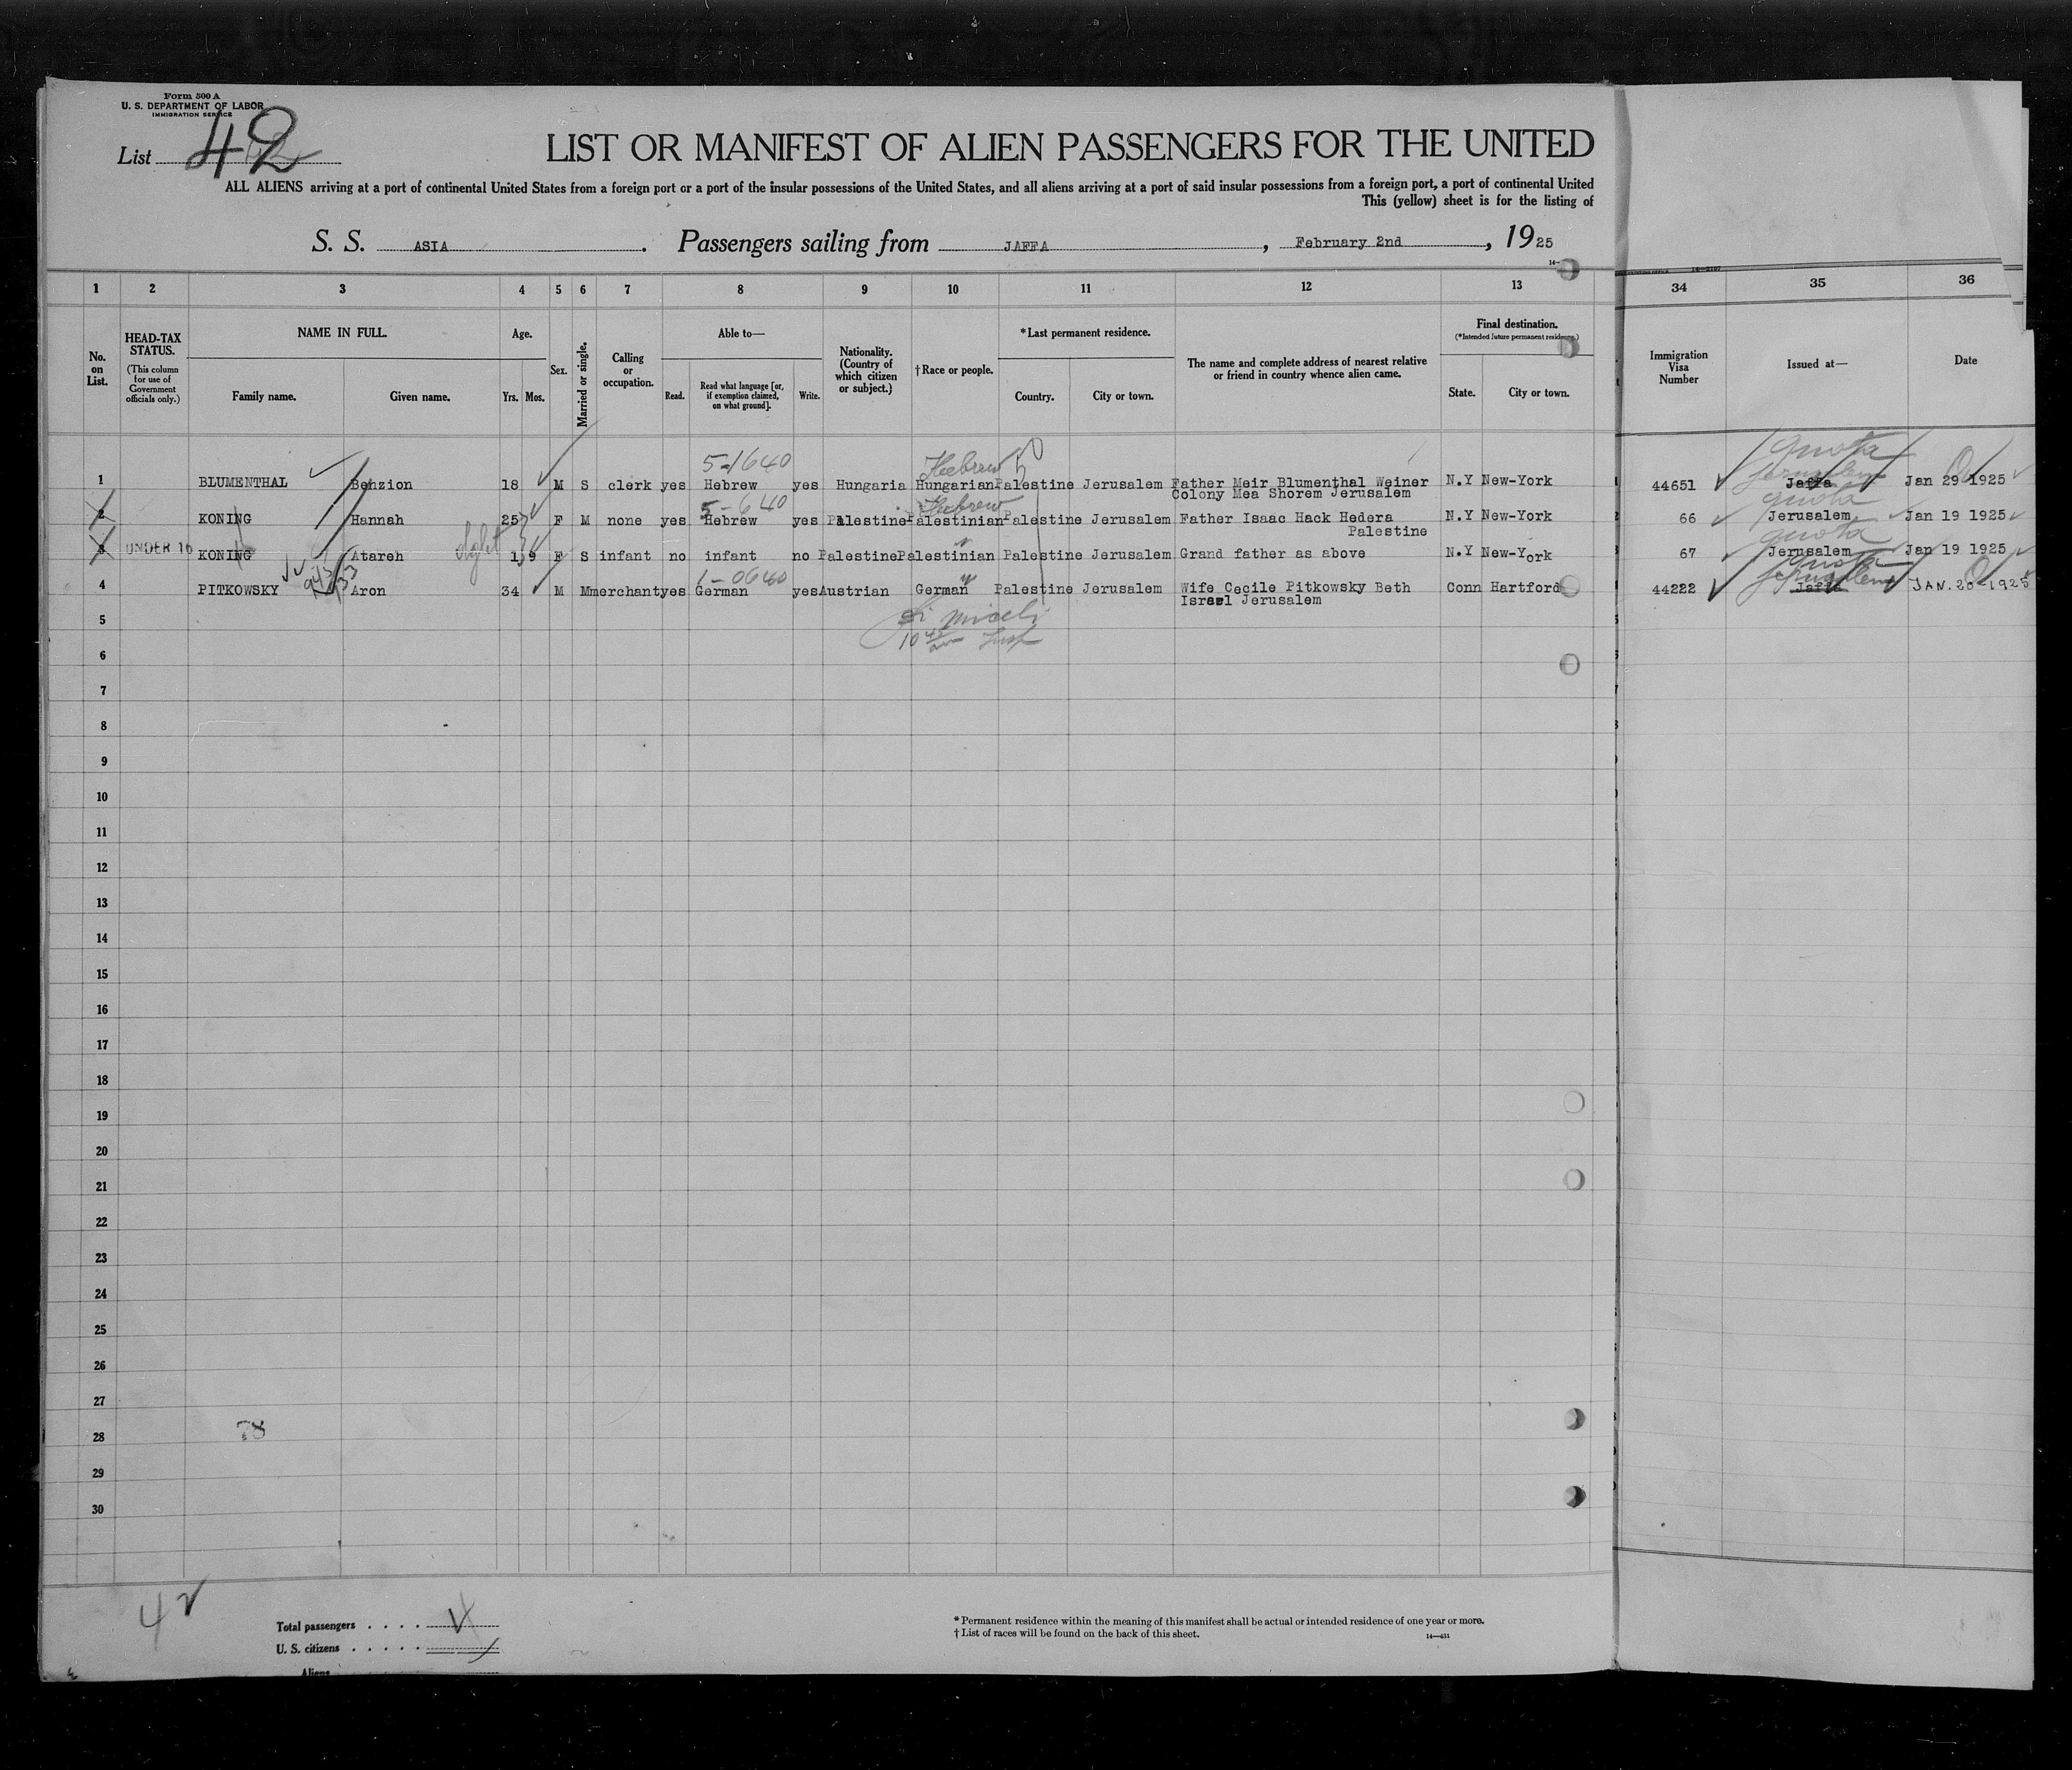 Form 500 A
U. S. DEPARTMENT OF LABOR
IMMIGRATION SERVICE
List 42
LIST OR MANIFEST OF ALIEN PASSENGERS FOR THE UNITED
ALL ALIENS arriving at a port of continental United States from a foreign port or a port of the insular possessions of the United States, and all aliens arriving at a port of said insular possessions from a foreign port, a port of continental United
This (yellow) sheet is for the listing of
S. S. ASIA . Passengers sailing from JAFFA , February 2nd , 1925
1 2 3 4 5 6 7 8 9 10 11 12 13 34 35 36
No. on List.
HEAD-TAX STATUS.
(This column for use of Government officials only.)
NAME IN FULL.
Family name. Given name.
Age.
Yrs. Mos.
Sex.
Married or single.
Calling or occupation.
Able to—
Read. Read what language [or, if exemption claimed, on what ground]. Write.
Nationality. (Country of which citizen or subject.)
†Race or people.
*Last permanent residence.
Country. City or town.
The name and complete address of nearest relative or friend in country whence alien came.
Final destination.
(*Intended future permanent residence.)
State. City or town.
Immigration Visa Number
Issued at—
Date
5-1640 Hebrew quota
1 BLUMENTHAL Benzion 18 M S clerk yes Hebrew yes Hungaria Hungarian Palestine Jerusalem Father Meir Blumenthal Weiner N.Y New-York 44651 Jaffa Jerusalem Jan 29 1925
Colony Mea Shorem Jerusalem
5-640 Hebrew quota
2 KONING Hannah 25 F M none yes Hebrew yes Palestine Palestinian Palestine Jerusalem Father Isaac Hack Hedera N.Y New-York 66 Jerusalem Jan 19 1925
Palestine
quota
3 UNDER 16 KONING Atareh 1 9 F S infant no infant no Palestine Palestinian Palestine Jerusalem Grand father as above N.Y New-York 67 Jerusalem Jan 19 1925
1-0640 quota
4 PITKOWSKY Aron 34 M M merchant yes German yes Austrian German Palestine Jerusalem Wife Cecile Pitkowsky Beth Conn Hartford 44222 Jaffa Jerusalem JAN. 20 1925
Israel Jerusalem
5
6
7
8
9
10
11
12
13
14
15
16
17
18
19
20
21
22
23
24
25
26
27
78
28
29
30
42
Total passengers . . . . 4
U. S. citizens . . . . .
Aliens
* Permanent residence within the meaning of this manifest shall be actual or intended residence of one year or more.
† List of races will be found on the back of this sheet.
14—431